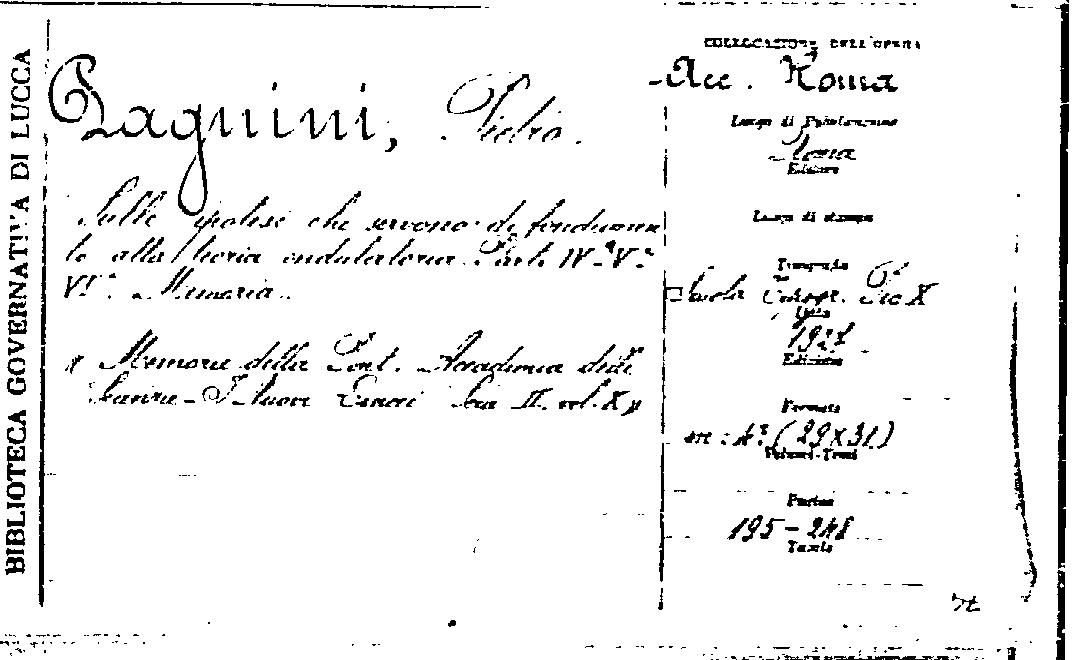 BIBLIOTECA GOVERNATIVA DI LUCCA
Pagnini, Pietro.
Sulle ipotesi che servono di fondamen
to alla teoria ondulatoria. Parte IVª Vª
VIª Memoria.
« Memorie della Pont. Accademia delle
Scienze - I Nuovi Lincei Serie II. vol. X »
COLLOCAZIONE DELL'OPERA
Acc. Roma
Luogo di Pubblicazione
Roma
Editore
Luogo di stampa
Tipografia
Scuola Tipogr. Pio X
Data
1927
Edizione
Formato
in: 4º (29X31)
Volumi-Tomi
Pagine
195-248
Tavole